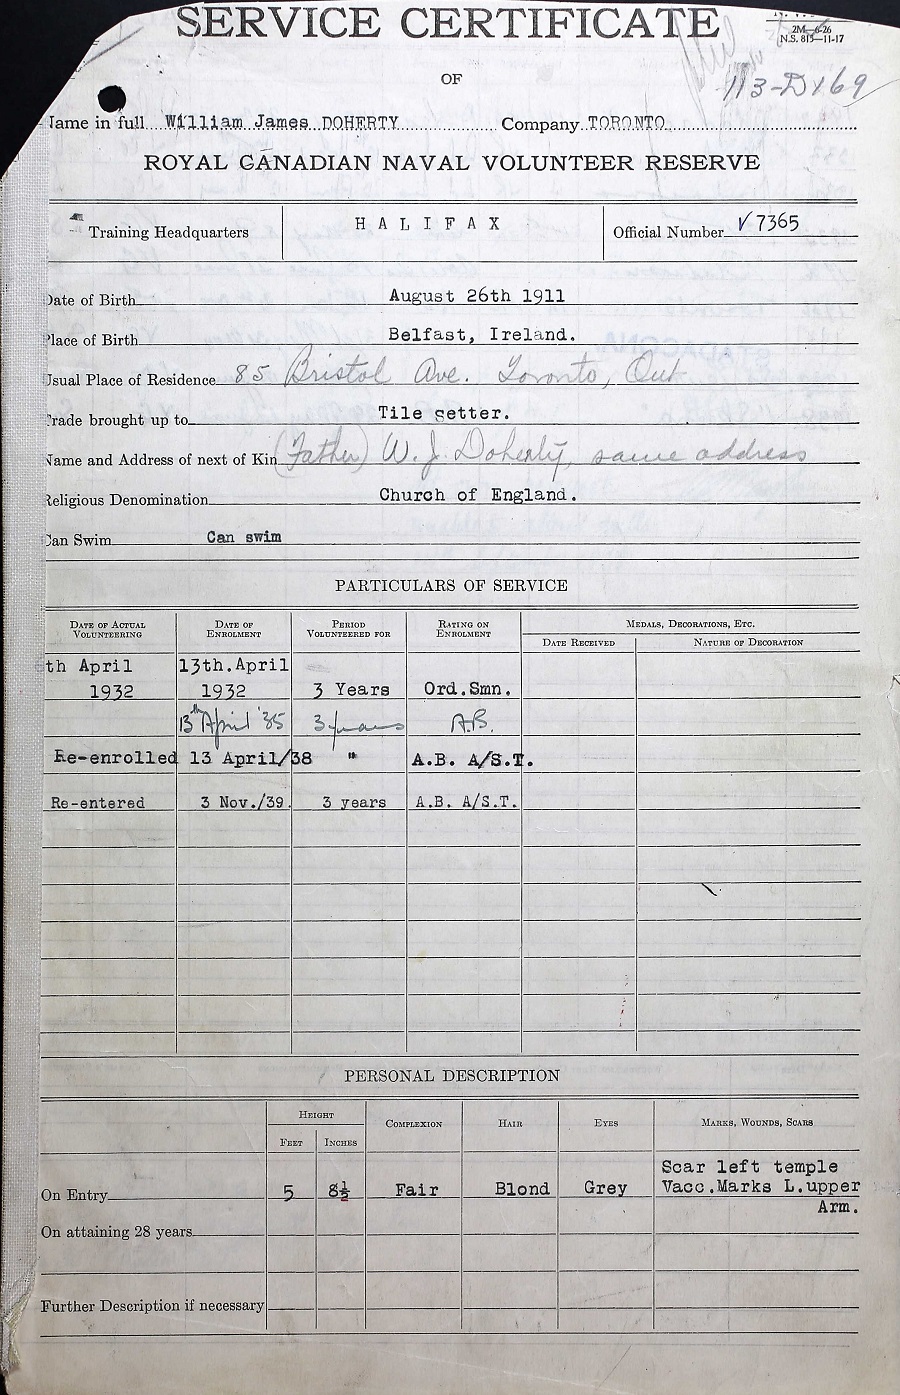 SERVICE CERTIFICATE
2M—6-26
N.S. 815—11-17
OF
113-D169
Name in full William James DOHERTY Company TORONTO
ROYAL CANADIAN NAVAL VOLUNTEER RESERVE
Training Headquarters HALIFAX Official Number V 7365
Date of Birth August 26th 1911
Place of Birth Belfast, Ireland.
Usual Place of Residence 85 Bristol Ave. Toronto, Ont
Trade brought up to Tile setter.
Name and Address of next of Kin (Father) W. J. Doherty, same address
Religious Denomination Church of England.
Can Swim Can swim
PARTICULARS OF SERVICE
DATE OF ACTUAL VOLUNTEERING DATE OF ENROLMENT PERIOD VOLUNTEERED FOR RATING ON ENROLMENT MEDALS, DECORATIONS, ETC.
DATE RECEIVED NATURE OF DECORATION
th April 13th.April
1932 1932 3 Years Ord.Smn.
13th April '35 3 years A.B.
Re-enrolled 13 April/38 " A.B. A/S.T.
Re-entered 3 Nov./39. 3 years A.B. A/S.T.
PERSONAL DESCRIPTION
HEIGHT COMPLEXION HAIR EYES MARKS, WOUNDS, SCARS
FEET INCHES
Scar left temple
On Entry 5 8½ Fair Blond Grey Vacc.Marks L.upper
Arm.
On attaining 28 years
Further Description if necessary